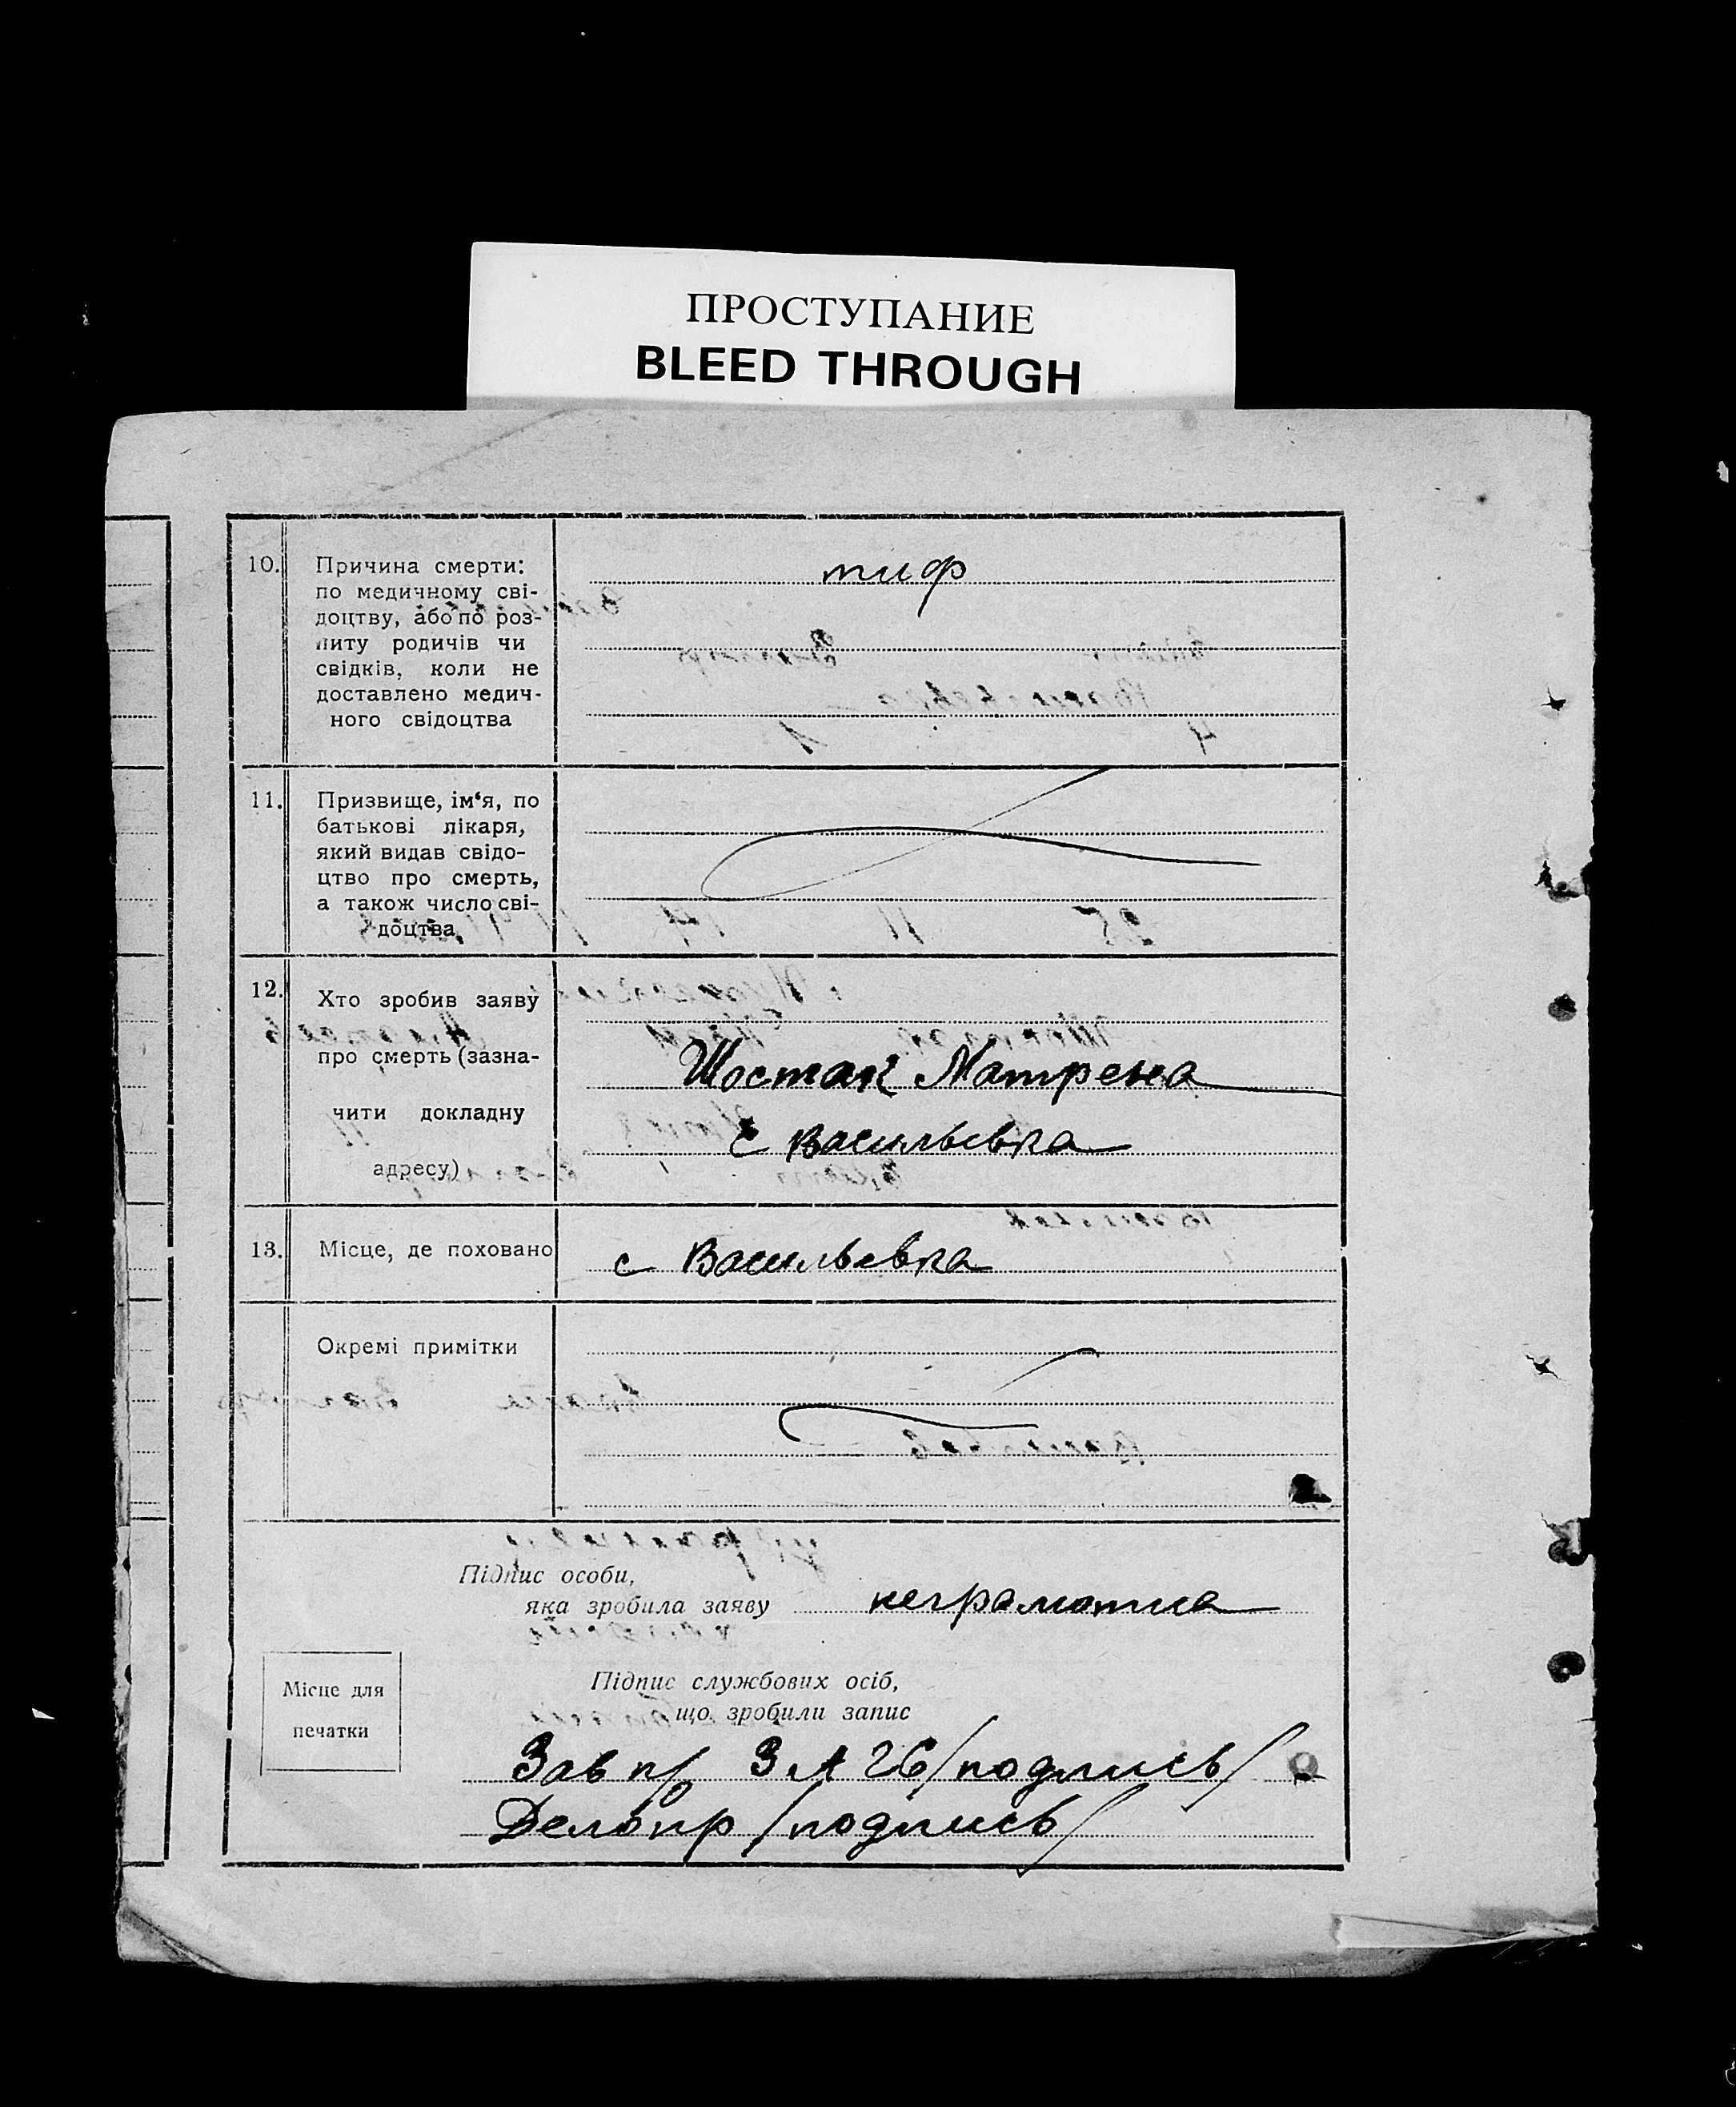 ПРОСТУПАНИЕ
BLEED THROUGH
10. Причина смерти:
по медичному сві-
доцтву, або по роз-
питу родичів чи
свідків, коли не
доставлено медич-
ного свідоцтва
тиф
11. Призвище, ім‘я, по
батькові лікаря,
який видав свідо-
цтво про смерть,
а також число сві-
доцтва
12. Хто зробив заяву
про смерть (зазна-
чити докладну
адресу)
Шостак Матрена
с Васильевка
13. Місце, де поховано
с Васильевка
Окремі примітки
Підпис особи,
яка зробила заяву неграмотна
Місце для
печатки
Підпис службових осіб,
що зробили запис
Зав п/ З А 26 /подпись/
Делопр /подпись/